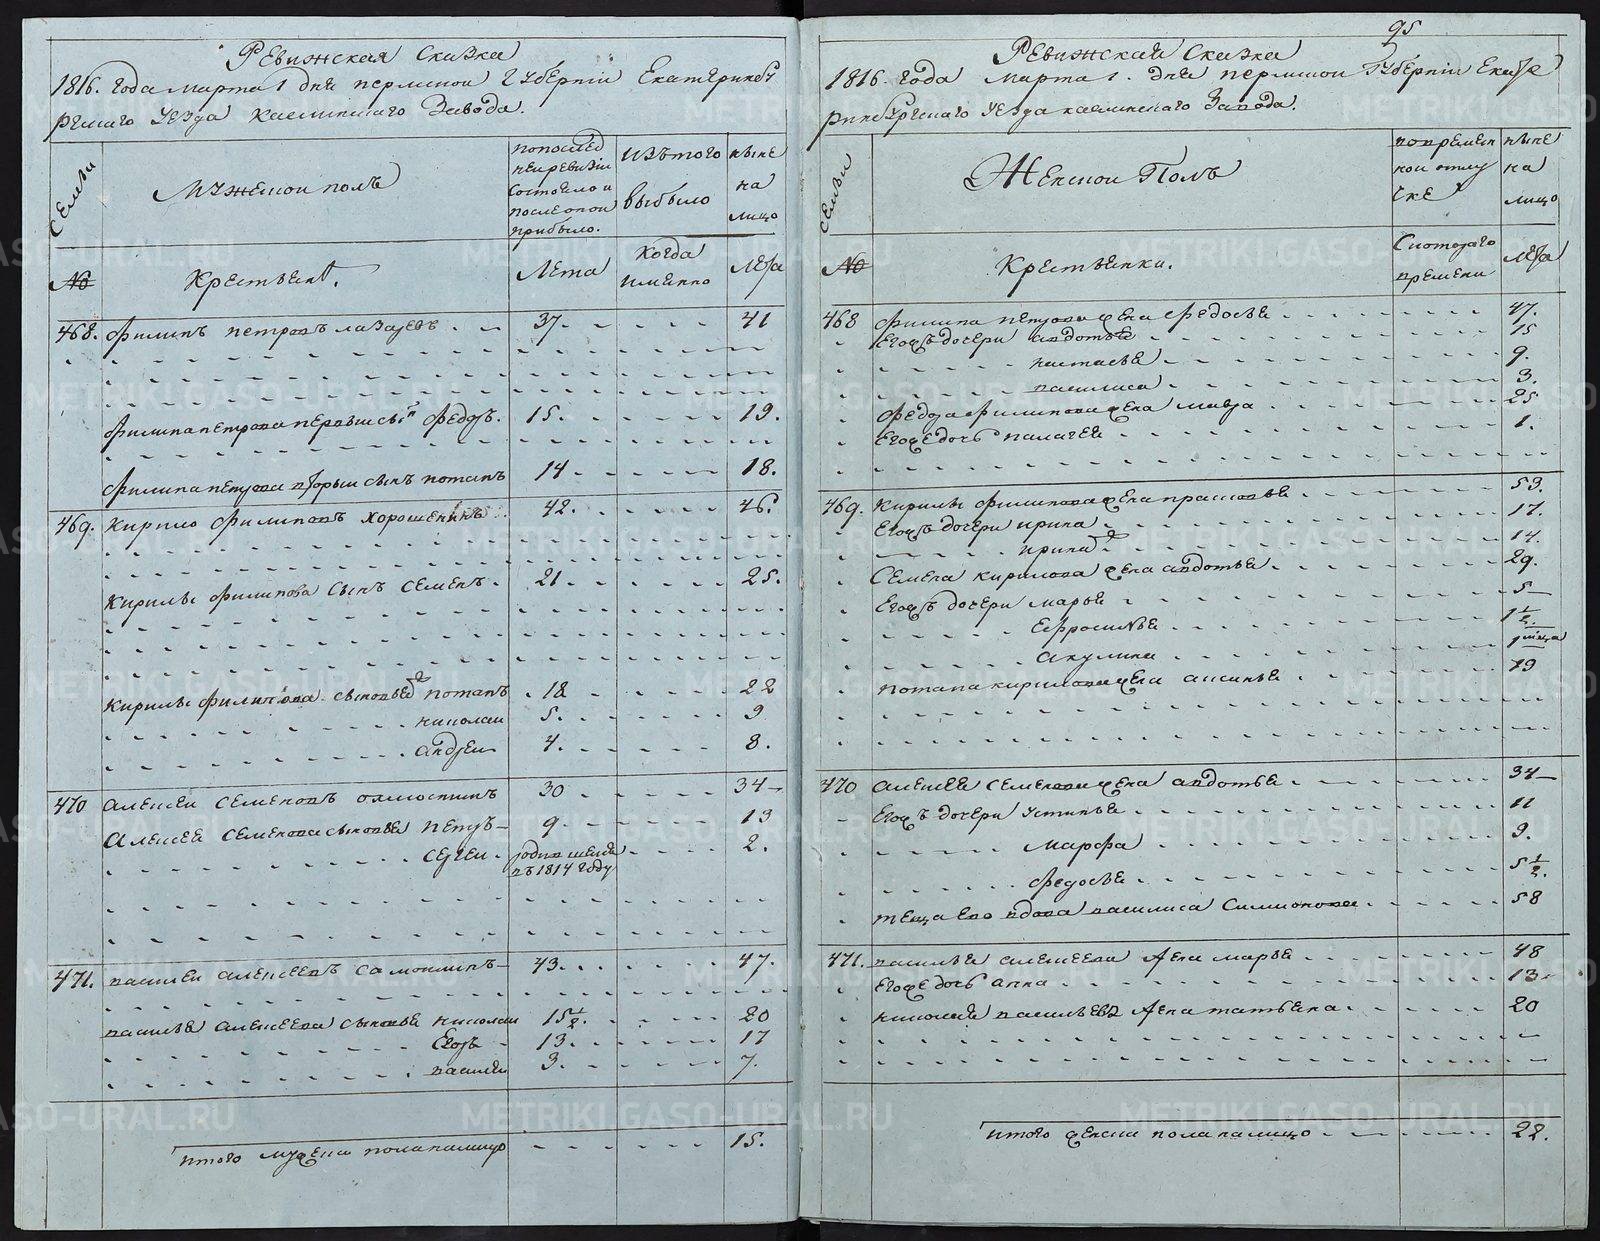 95
Ревижская Сказка
1816. года марта 1 дня пермской Губернiи Екатеринбу
ргскаго Уезда каслинскаго Завода.
Семьи
Мужескои полъ
попослед
неиревизiи
состояло и
после онои
прибыло.
изътого
выбыло
ныне
на
лицо
№
Крестьяня.
Лета
Когда
имянно
Лета
468. Филипъ петровъ лазаревъ 37. 41
Филипа петрова первыи сынъ Федоръ. 15. 19.
Филипа петрова вторыи сынъ потапъ 14 18.
469. Кирило Филиповъ Хорошенинъ 42. 46.
Кирилы филипова сынъ семенъ. 21. 25.
Кирилы филипова сыновья потапъ 18 22
николаи 5. 9
андреи 4. 8.
470 Алексеи семеновъ 30 34
Алексея семенова сыновья петръ 9. 13
сергеи родился
въ 1814 году 2.
471. василеи алексеевъ самоилинъ 43. 47.
василья алексеева сыновья николаи 15 1/2. 20
Егоръ 13. 17
василеи 3. 7.
итого мужеска пола налицо 15.
Ревижская Сказка
1816. года марта 1. дня пермской Губернiи Екате
ринбургскаго Уезда каслинскаго Завода.
Семьи
Женскои Полъ
во времен
нои отлу
чке
ныне
на
лицо
№
Крестьянки.
Скотораго
времени
Лета
468 Филипа петрова жена федосья 47.
Егожъ дочери авдотья 15
настасья 9.
василиса 3.
Федора филипова жена мавра 25.
Егоже дочь палагея 1.
469. Кирилы филипова жена прасковья 53.
Егожъ дочери ирина 17.
ирина 14.
Семена кирилова жена авдотья 29.
Егожъ дочери марья 5
Ефросинья 1 1/2.
акулина 1 месяца
потапа кирилова жена аксинья 19
470 алексея семенова жена авдотья 34
Егожъ дочери устинья 11
марфа 9.
федосья 5 1/2.
теща ево вдова василиса Симионова 58
471. василья алексеева жена марья 48
Егоже дочь анна 13
николая васильева жена татьяна 20
итого женска пола налицо 22.
METRIKI.GASO-URAL.RU